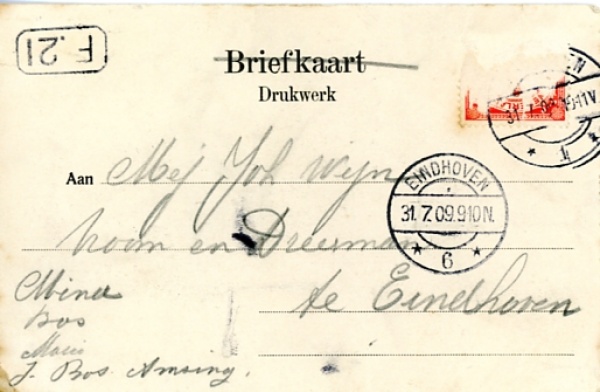 F. 21
Briefkaart
Drukwerk
31. 7. 09. 11V.
4
Aan Mej Joh Wijn
EINDHOVEN
31. 7.09.9 10N.
6
Vroom en Dreesman
te Eindhoven
Mina
Bos
Marie
J. Bos Amsing.